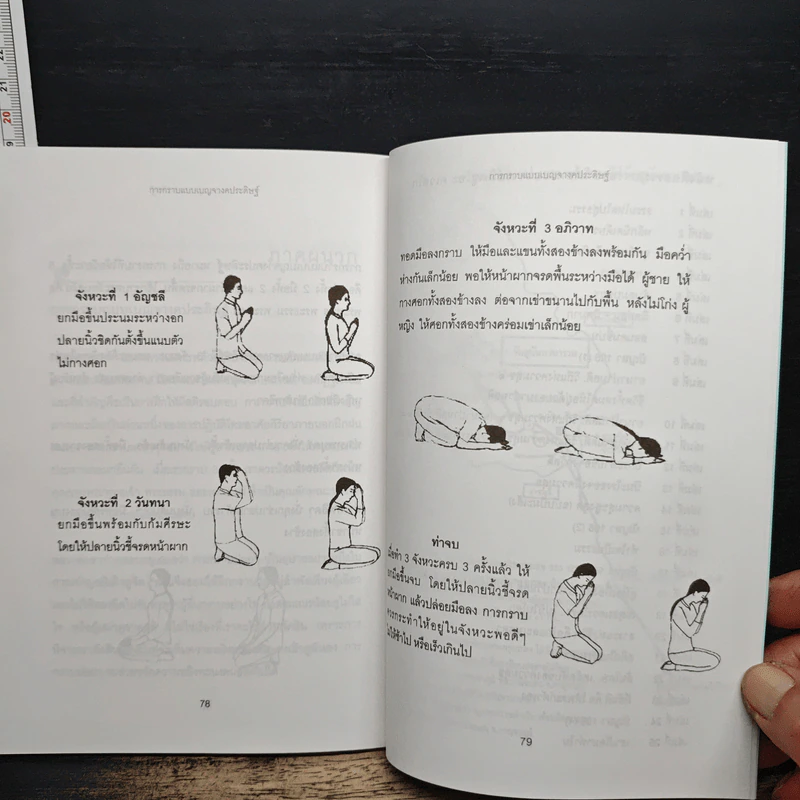 การกราบแบบเบญจางคประดิษฐ์
จังหวะที่ 1 อัญชลี
ยกมือขึ้นประนมระหว่างอก
ปลายนิ้วชิดกันตั้งขึ้นแนบตัว
ไม่กางศอก
จังหวะที่ 2 วันทนา
ยกมือขึ้นพร้อมกับก้มศีรษะ
โดยให้ปลายนิ้วชี้จรดหน้าผาก
78
การกราบแบบเบญจางคประดิษฐ์
จังหวะที่ 3 อภิวาท
ทอดมือลงกราบ ให้มือและแขนทั้งสองข้างลงพร้อมกัน มือคว่ำ
ห่างกันเล็กน้อย พอให้หน้าผากจรดพื้นระหว่างมือได้ ผู้ชาย ให้
กางศอกทั้งสองข้างลง ต่อจากเข่าขนานไปกับพื้น หลังไม่โก่ง ผู้
หญิง ให้ศอกทั้งสองข้างคร่อมเข่าเล็กน้อย
ท่าจบ
เมื่อทำ 3 จังหวะครบ 3 ครั้งแล้ว ให้
ยกมือขึ้นจบ โดยให้ปลายนิ้วชี้จรด
หน้าผาก แล้วปล่อยมือลง การกราบ
ควรกระทำให้อยู่ในจังหวะพอดีๆ
ไม่ให้ช้าไป หรือเร็วเกินไป
79
22
21
20